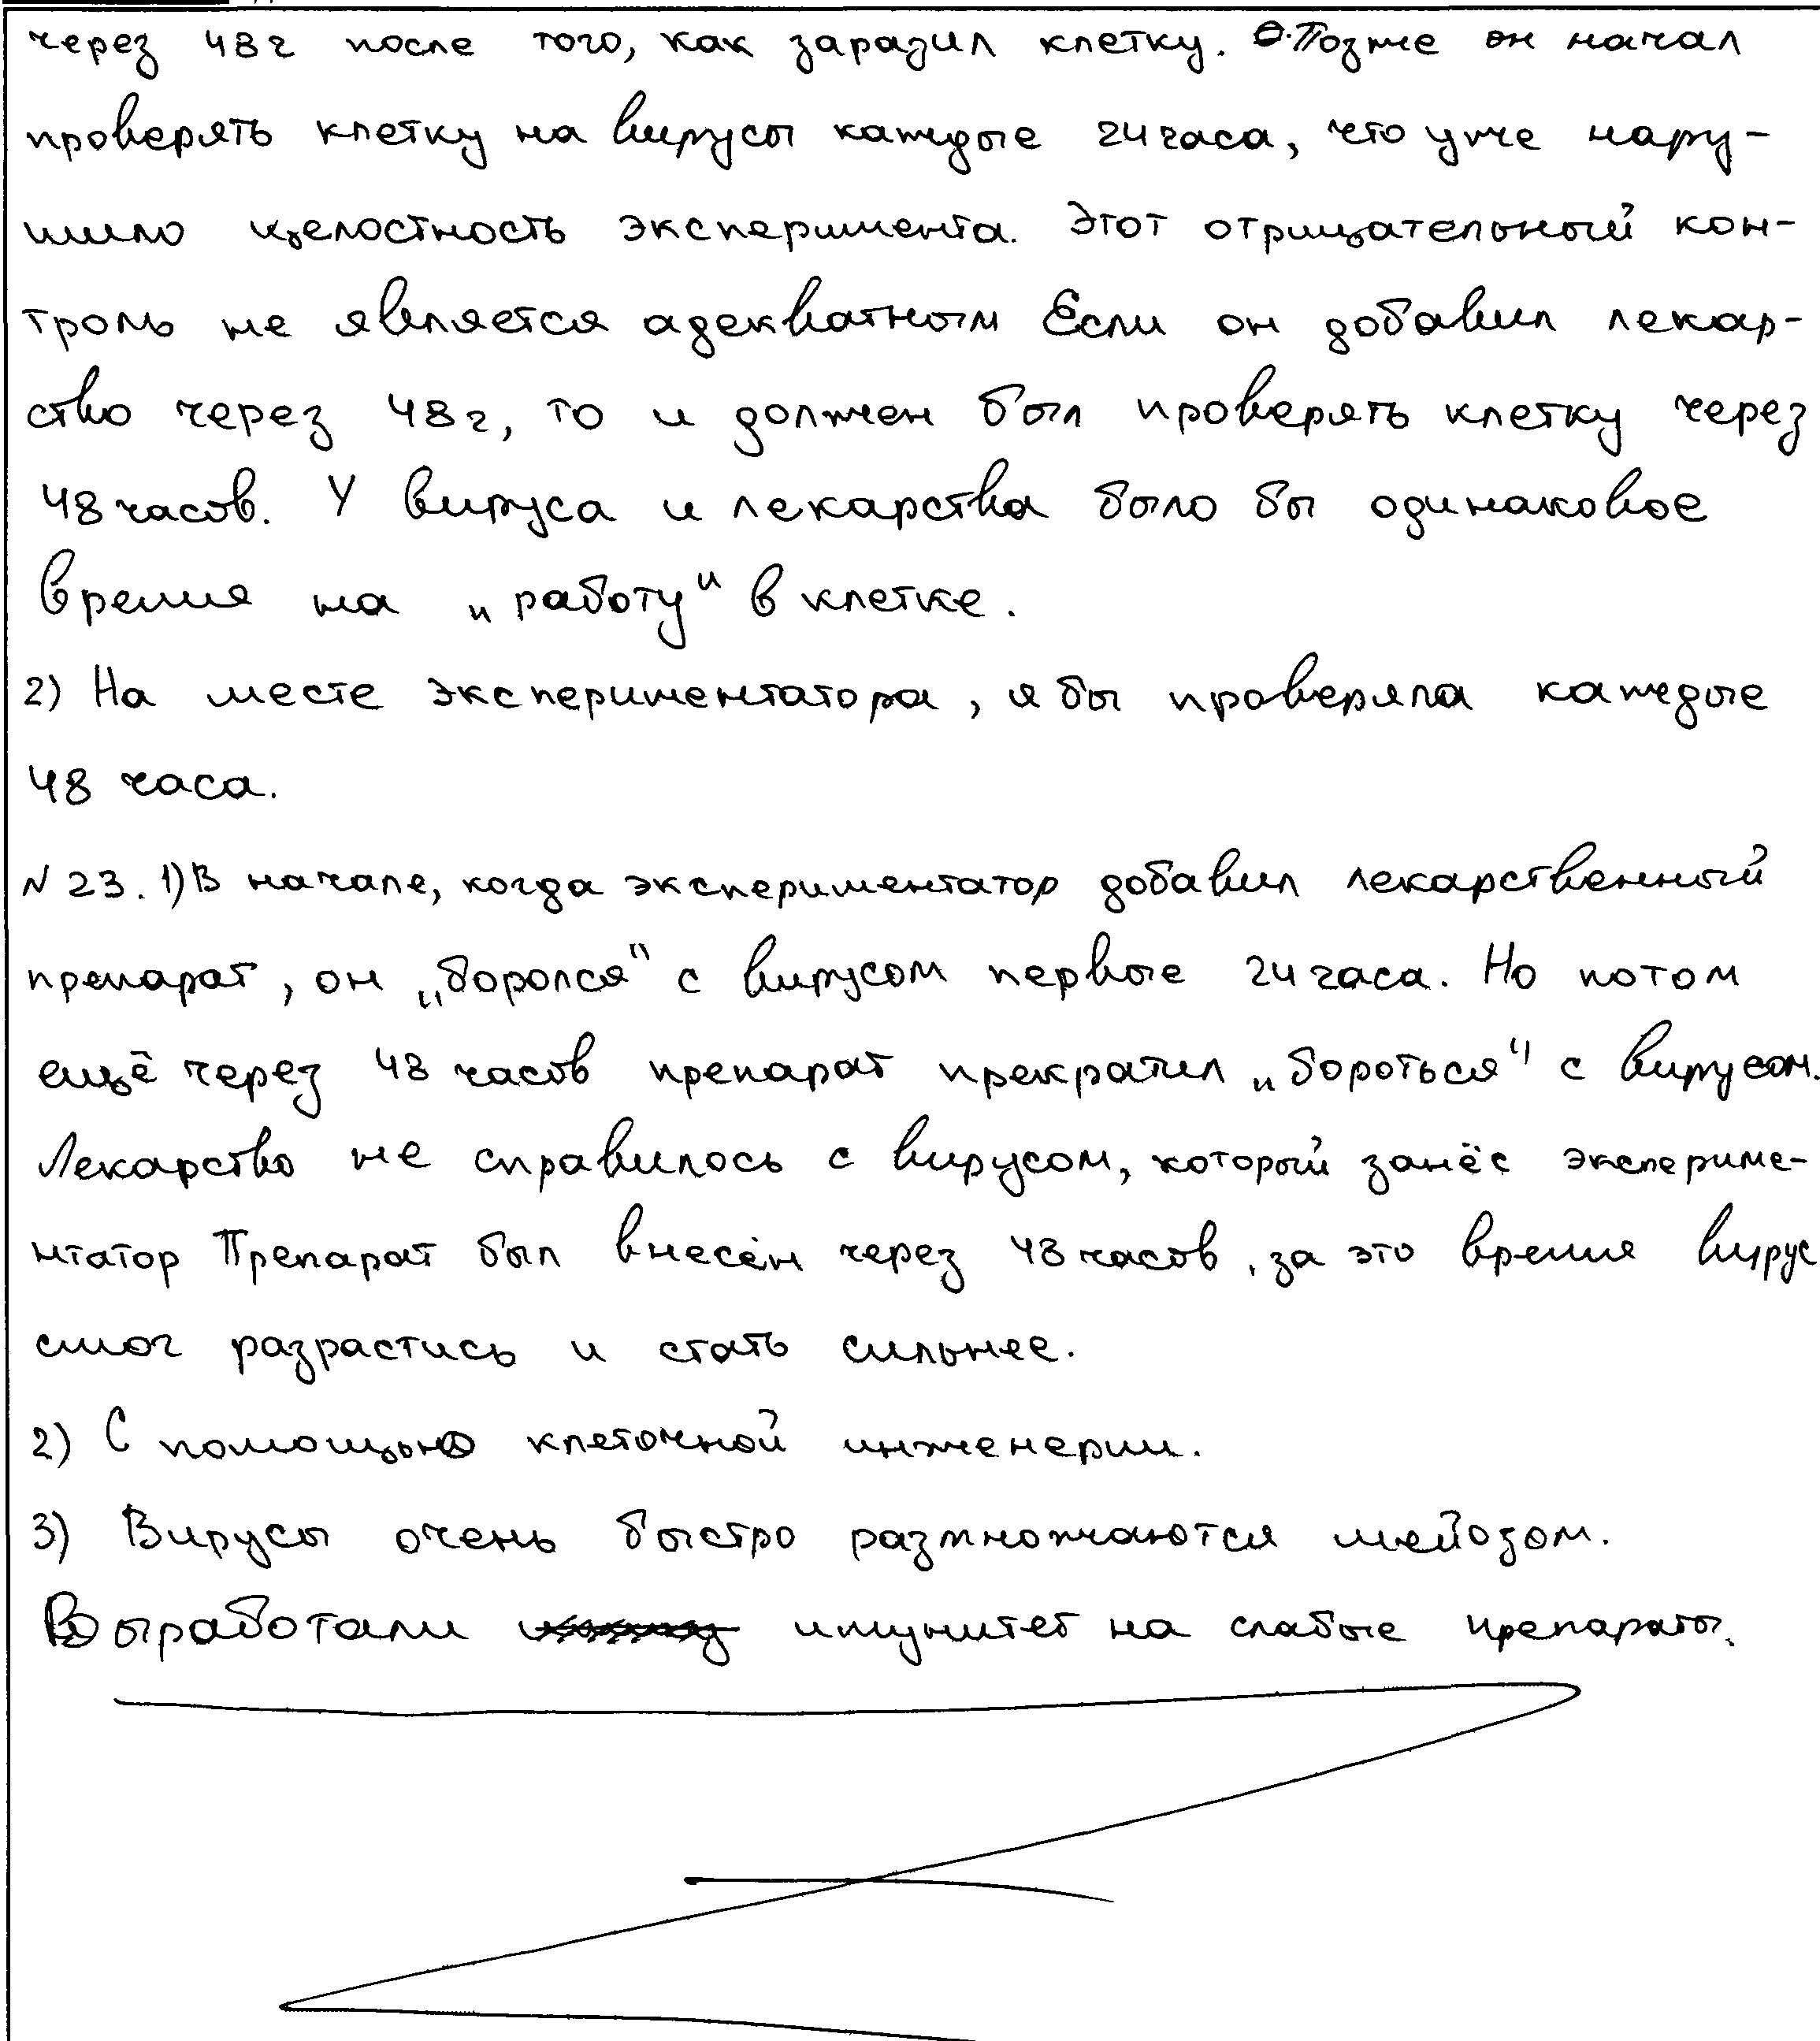 через 48г после того, как заразил клетку. Позже он начал
проверять клетку на вирусы каждые 24 часа, что уже нару-
шило целостность эксперимента. Этот отрицательный кон-
троль не является адекватным Если он добавил лекар-
ство через 48г, то и должен был проверять клетку через
48 часов. У вируса и лекарства было бы одинаковое
время на „работу" в клетке.
2) На месте экспериментатора, я бы проверяла каждые
48 часа.
N 23. 1) В начале, когда экспериментатор добавил лекарственный
препарат, он „боролся" с вирусом первые 24 часа. Но потом
ещё через 48 часов препарат прекратил „бороться" с вирусом.
Лекарство не справилось с вирусом, который занёс эксперимe-
нтатор Препарат был внесён через 48 часов, за это время вирус
смог разрастись и стать сильнее.
2) С помощью клеточной инженерии.
3) Вирусы очень быстро размножаются мейозом.
Выработали имунитет на слабые препараты.